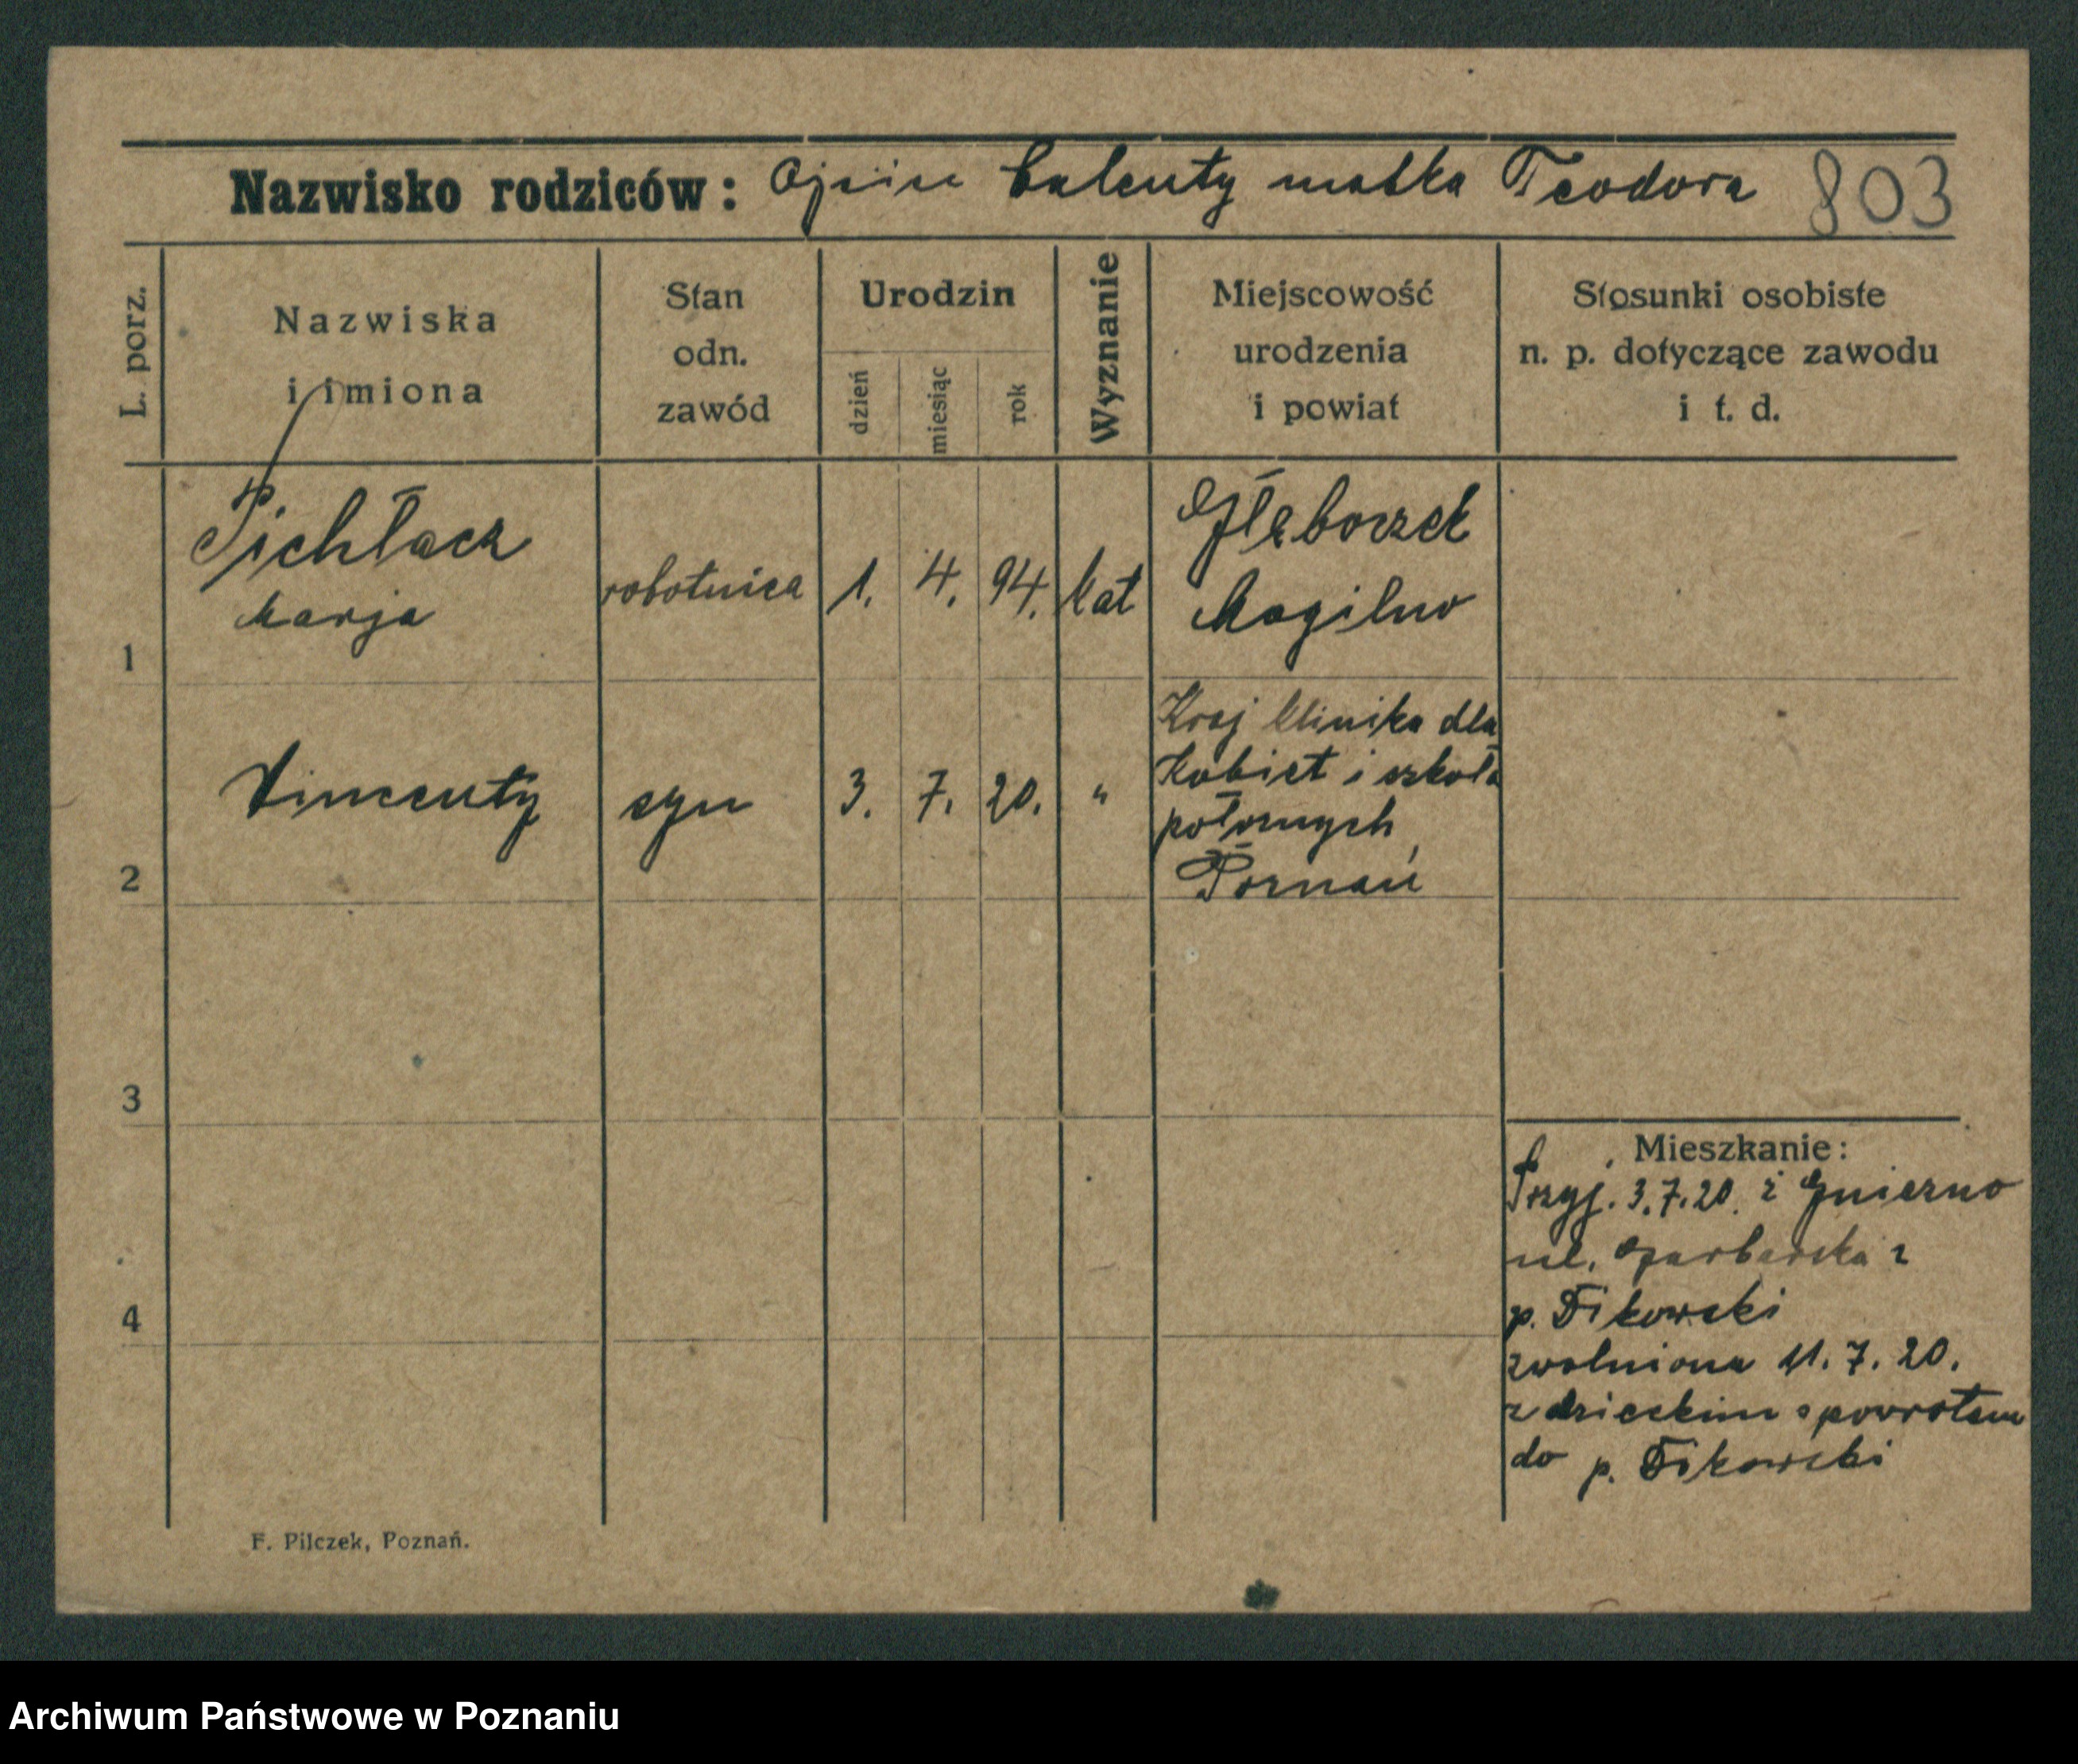 Nazwisko rodziców: Ojciec Walenty matka Teodora 803
L. porz.
Nazwiska
i imiona
Stan
odn.
zawód
Urodzin
dzień
miesiąc
rok
Wyznanie
Miejscowość
urodzenia
i powiat
Stosunki osobiste
n. p. dotyczące zawodu
i t. d.
1
Pichłacz
Marja
robotnica
1. 4. 94.
kat
Głęboczek
Mogilno
2
Vincenty
syn
3. 7. 20.
"
Kraj klinika dla
Kobiet i szkoła
położnych
Poznań
3
4
Mieszkanie:
Przyj. 3.7.20. z Gniezno
ul. Garbarska 2
p. Fikowski
zwolniona 11. 7. 20.
z dzieckim spowrotem
do p. Fikowski
F. Pilczek, Poznań.
Archiwum Państwowe w Poznaniu